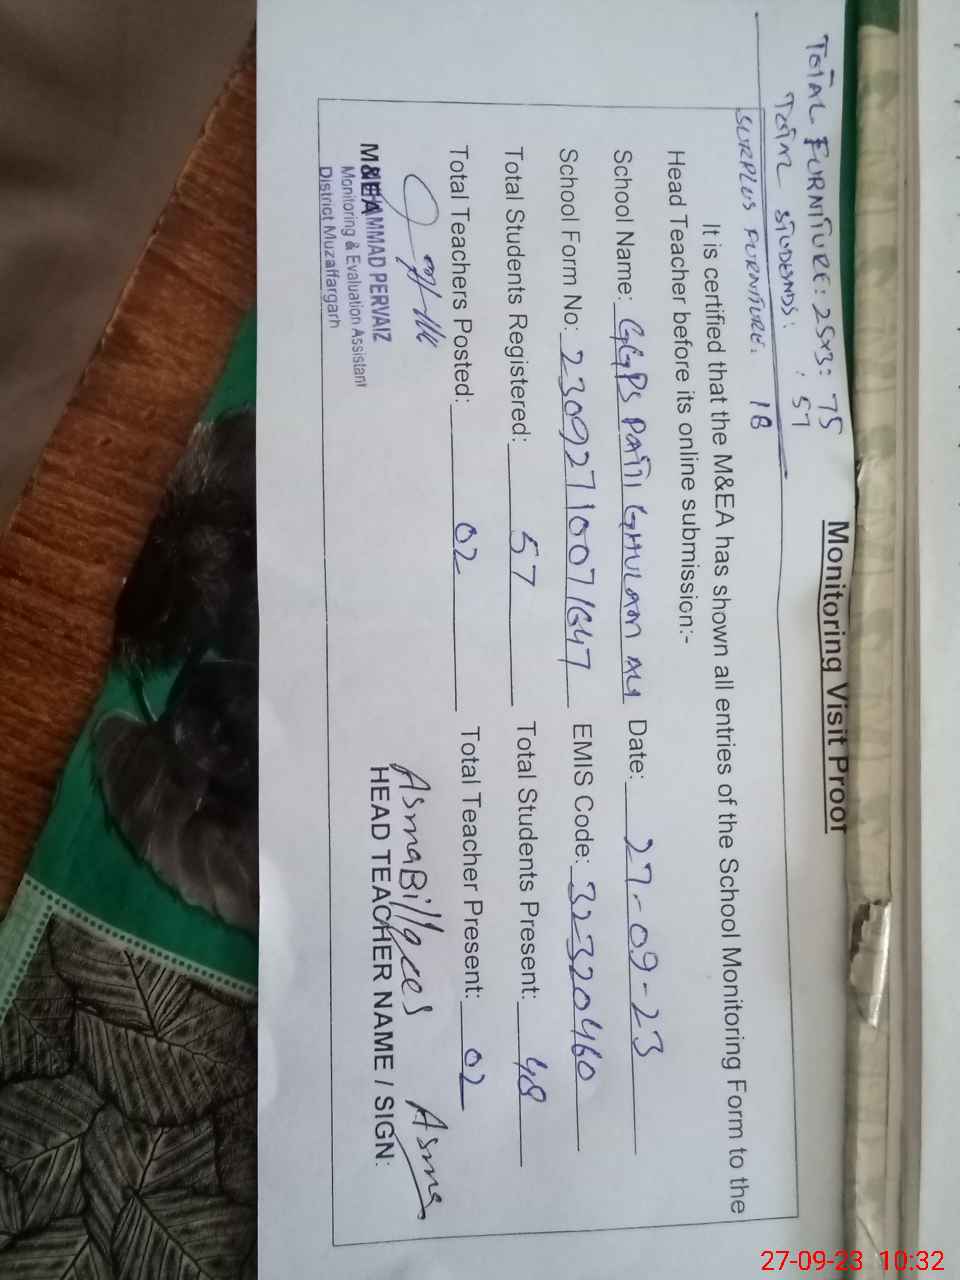 TOTAL FURNITURE: 25x3: 75
TOTAL STUDENDS: : 57
SURPLUS FURNITURE. 18
Monitoring Visit Proof
It is certified that the M&EA has shown all entries of the School Monitoring Form to the
Head Teacher before its online submission:-
School Name: GGPS PATTI GHULAM ALI Date: 27-09-23
School Form No: 23092710071647 EMIS Code: 32320460
Total Students Registered: 57 Total Students Present: 48
Total Teachers Posted: 02 Total Teacher Present: 02
AsmaBillqees Asma
M&EA HEAD TEACHER NAME / SIGN:
MUHAMMAD PERVAIZ
Monitoring & Evaluation Assistant
District Muzaffargarh
27-09-23 10:32